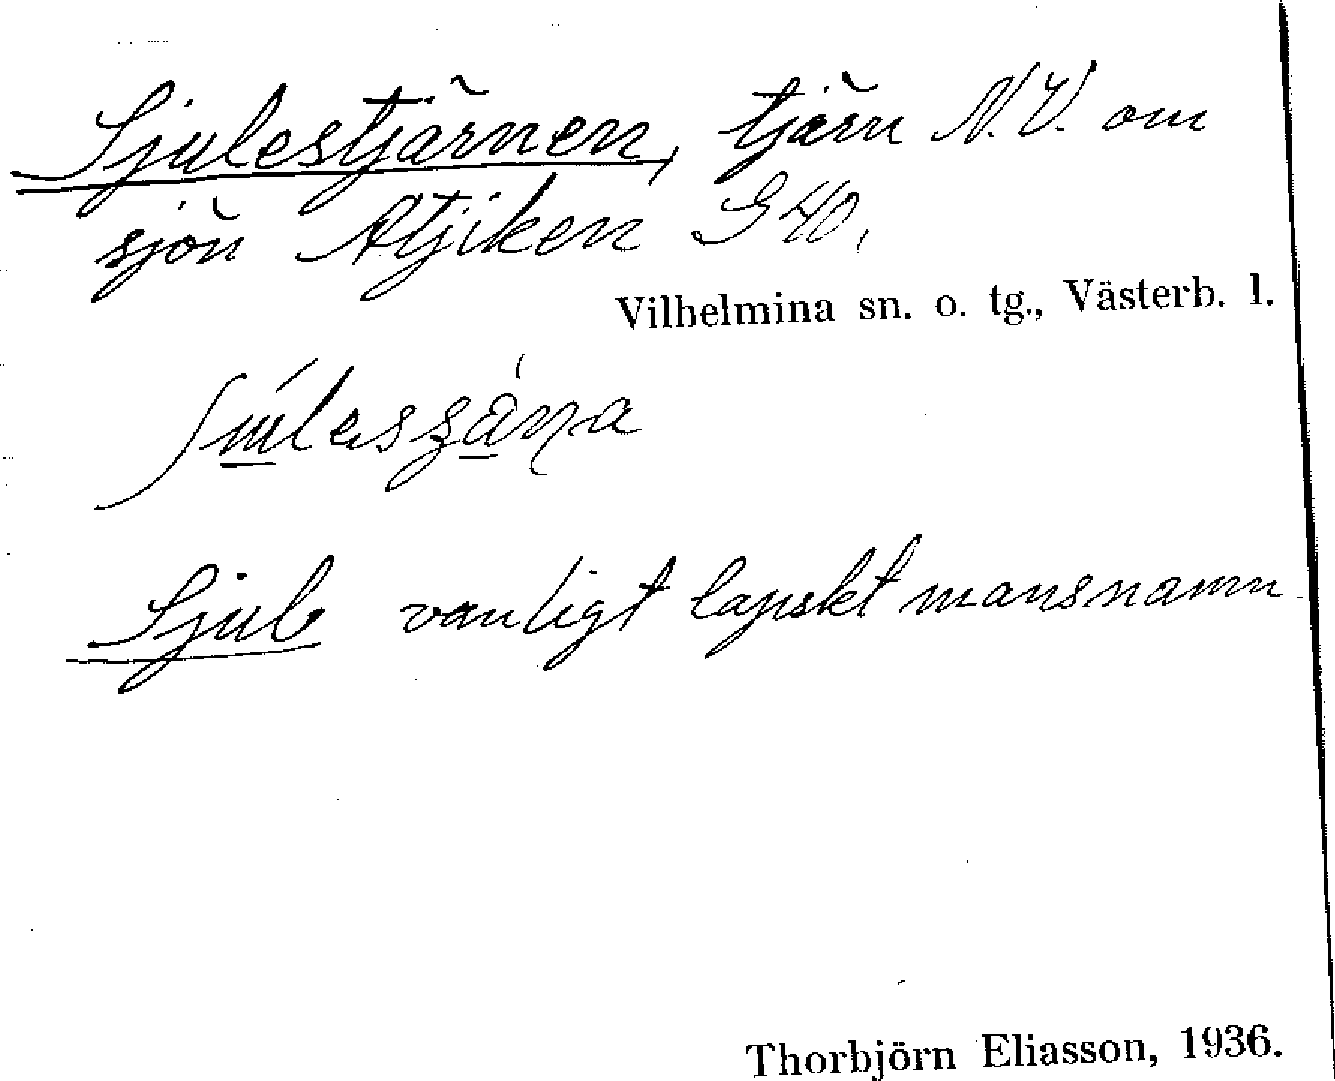 Sjulestjärnen, tjärn N.V. om
sjön Atjiken G40,
Vilhelmina sn. o. tg., Västerb. l.
Sjul vanligt lapskt mansnamn
Thorbjörn Eliasson, 1936.